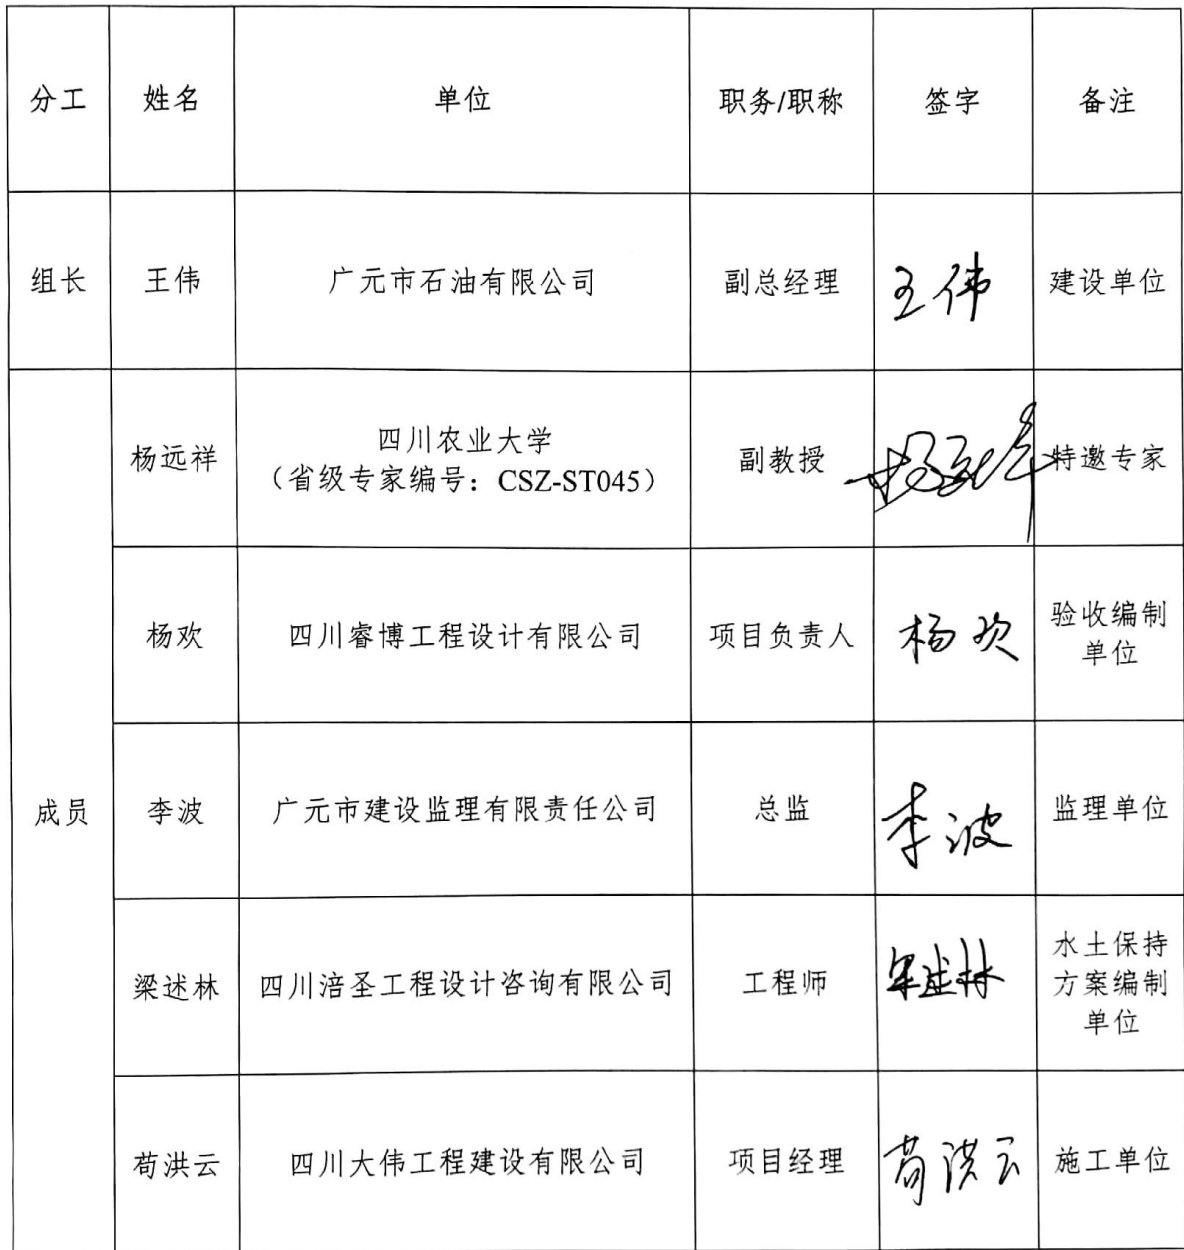 分工 姓名 单位 职务/职称 签字 备注
组长 王伟 广元市石油有限公司 副总经理 王伟 建设单位
成员
杨远祥 四川农业大学
（省级专家编号：CSZ-ST045） 副教授 杨远祥 特邀专家
杨欢 四川睿博工程设计有限公司 项目负责人 杨欢 验收编制
单位
李波 广元市建设监理有限责任公司 总监 李波 监理单位
梁述林 四川涪圣工程设计咨询有限公司 工程师 梁述林 水土保持
方案编制
单位
苟洪云 四川大伟工程建设有限公司 项目经理 苟洪云 施工单位